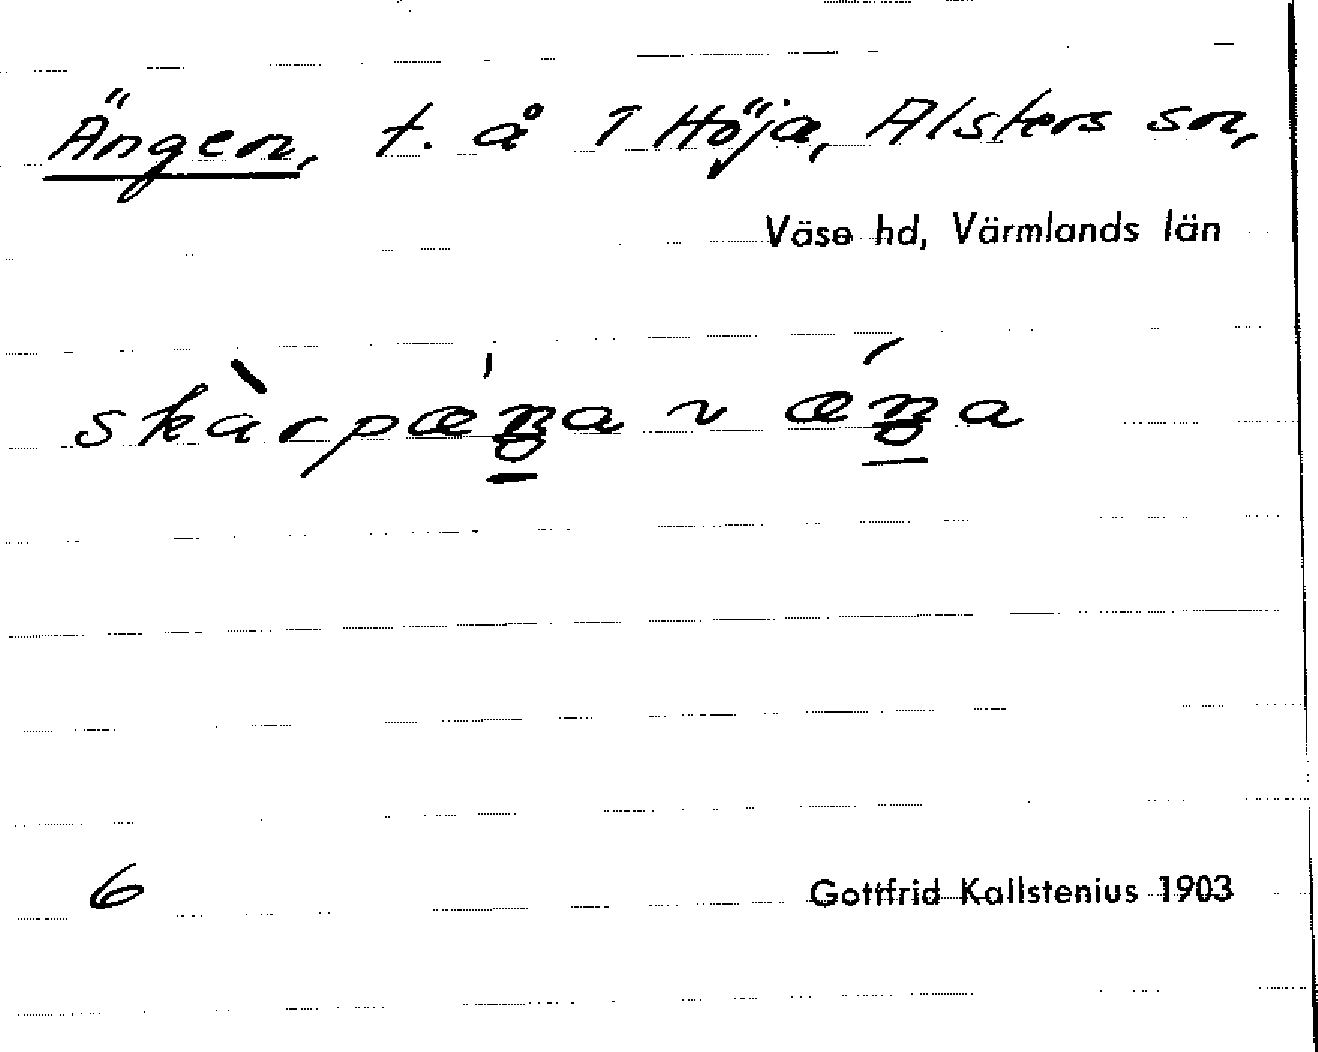 Ängen, t. å 1 Höja, Alsters sn,
Väse hd, Värmlands län
skàrpæ̀ŋa ~ ǽŋa
6
Gottfrid Kallstenius 1903